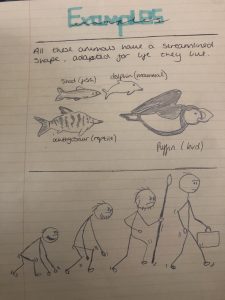 Examples
All these animals have a streamlined
shape, adapted for life they live.
shad (fish)
dolphin (mammal)
(reptile)
Puffin (bird)